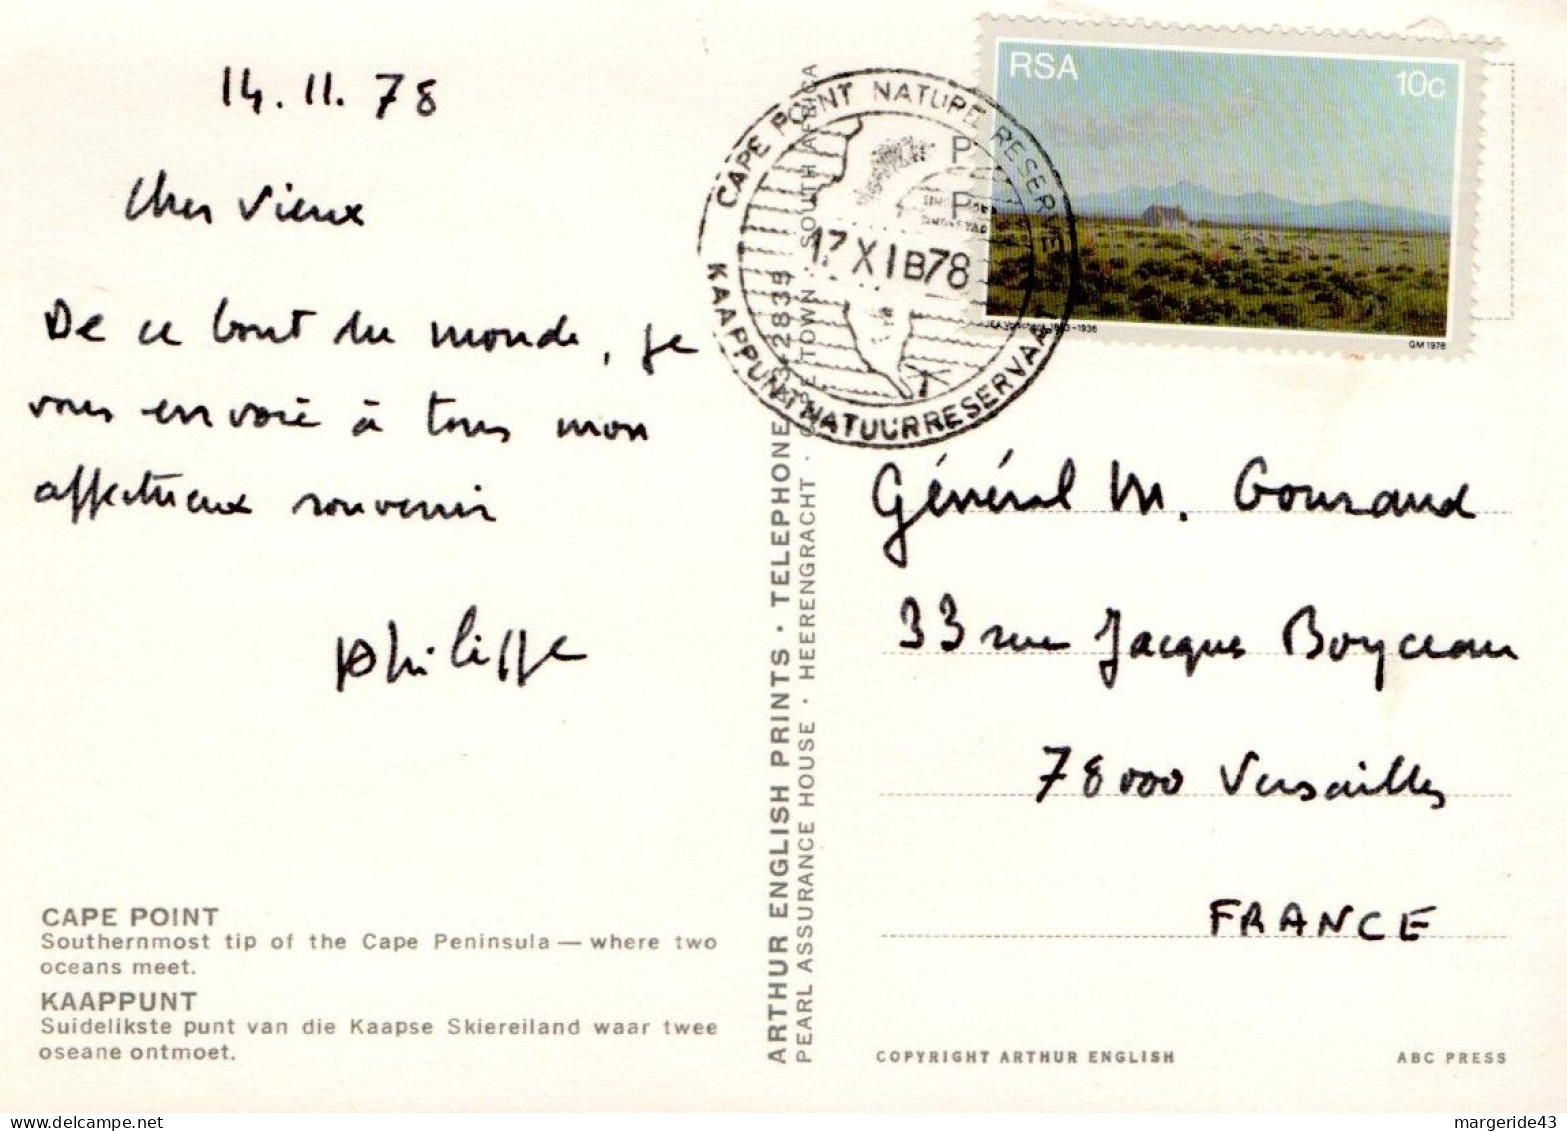 14.11.78
Cher Vieux
De ce bout du monde, je
vous envoie à tous mon
affectueux souvenir
Philippe
CAPE POINT
Southernmost tip of the Cape Peninsula — where two
oceans meet.
KAAPPUNT
Suidelikste punt van die Kaapse Skiereiland waar twee
oseane ontmoet.
ARTHUR ENGLISH PRINTS · TELEPHONE 2-2835
PEARL ASSURANCE HOUSE · HEERENGRACHT · CAPE TOWN · SOUTH AFRICA
CAPE POINT NATURE RESERVE
17 XI B78
KAAPPUNTNATUURRESERVAAT
RSA
10c
1936
GM 1978
Général M. Gouraud
33 rue Jacques Boyceau
78000 Versailles
FRANCE
COPYRIGHT ARTHUR ENGLISH
ABC PRESS
margeride43